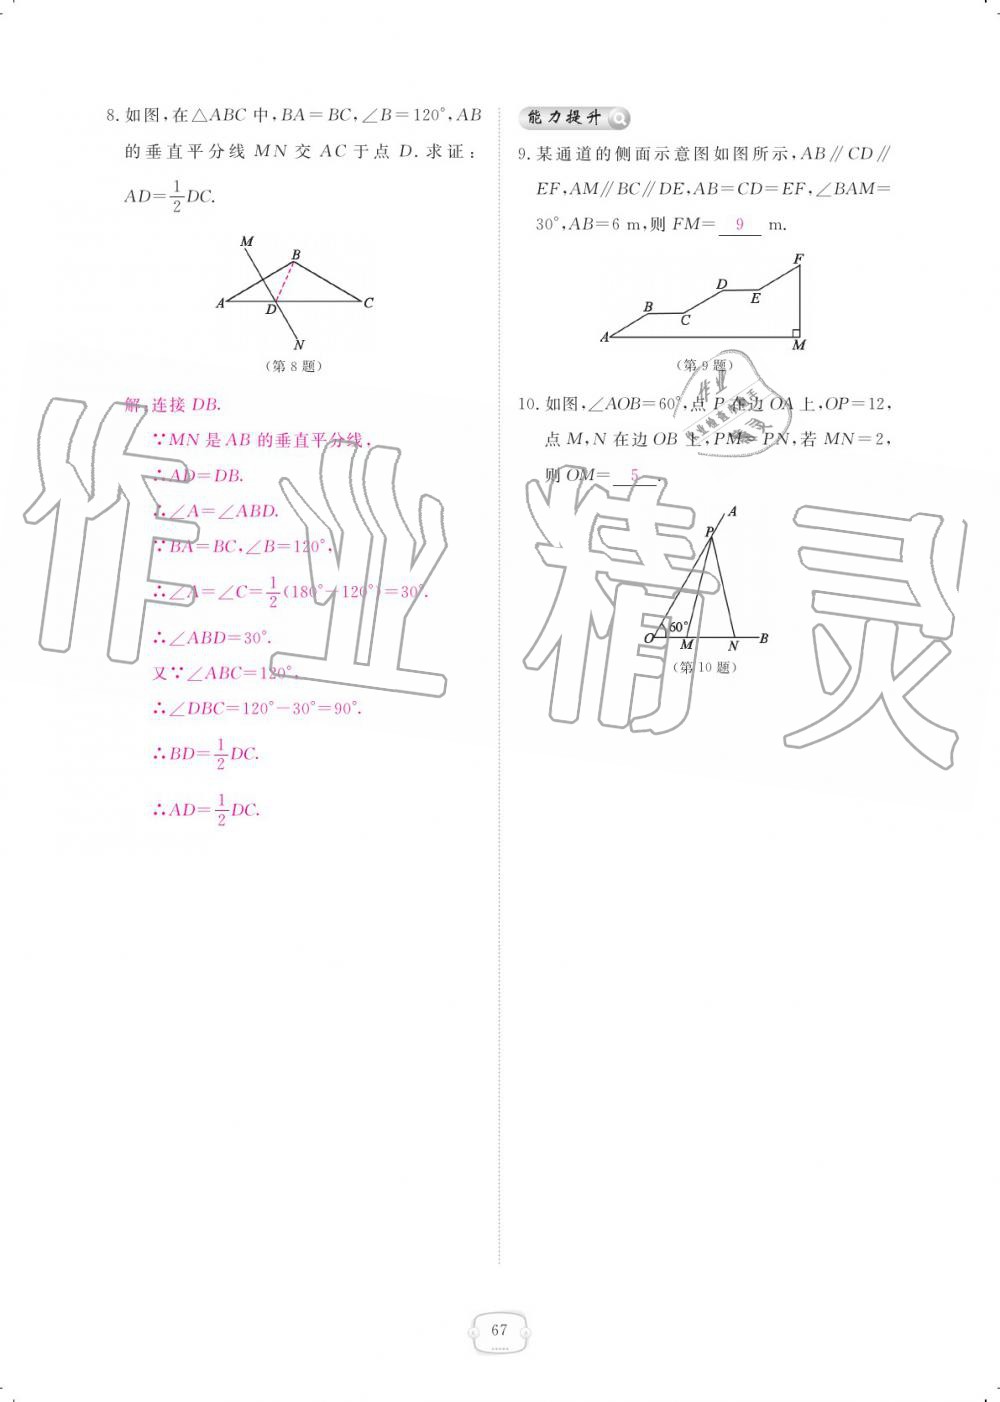 8. 如图,在△ABC 中,BA=BC,∠B=120°,AB
的垂直平分线 MN 交 AC 于点 D.求证:
AD=1/2DC.
M
B
A
D
C
N
(第 8 题)
解:连接 DB.
∵MN 是 AB 的垂直平分线,
∴AD=DB.
∴∠A=∠ABD.
∵BA=BC,∠B=120°,
∴∠A=∠C=1/2(180°-120°)=30°.
∴∠ABD=30°.
又∵∠ABC=120°,
∴∠DBC=120°-30°=90°.
∴BD=1/2DC.
∴AD=1/2DC.
能力提升
9. 某通道的侧面示意图如图所示,AB∥CD∥
EF,AM∥BC∥DE,AB=CD=EF,∠BAM=
30°,AB=6 m,则 FM= 9 m.
F
D
E
B
C
A
M
(第 9 题)
10. 如图,∠AOB=60°,点 P 在边 OA 上,OP=12,
点 M,N 在边 OB 上,PM=PN,若 MN=2,
则 OM= 5 .
A
P
60°
O
M
N
B
(第 10 题)
作业精灵
67